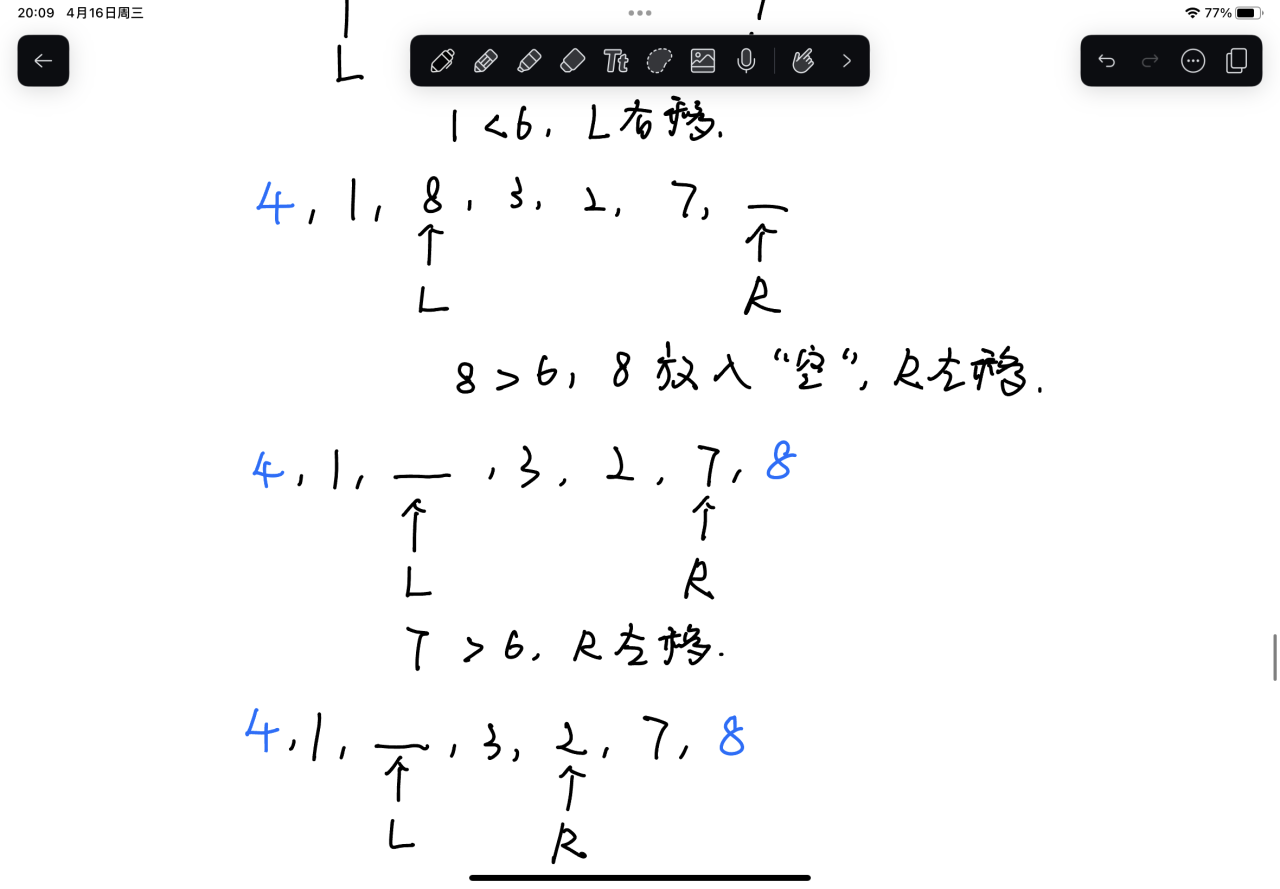 20:09 4月16日周三
77%
Tt
L
1 < 6, L右移.
4, 1, 8, 3, 2, 7, __
↑ ↑
L R
8 > 6, 8 放入“空”, R左移.
4, 1, __, 3, 2, 7, 8
↑ ↑
L R
7 > 6, R左移.
4, 1, __, 3, 2, 7, 8
↑ ↑
L R